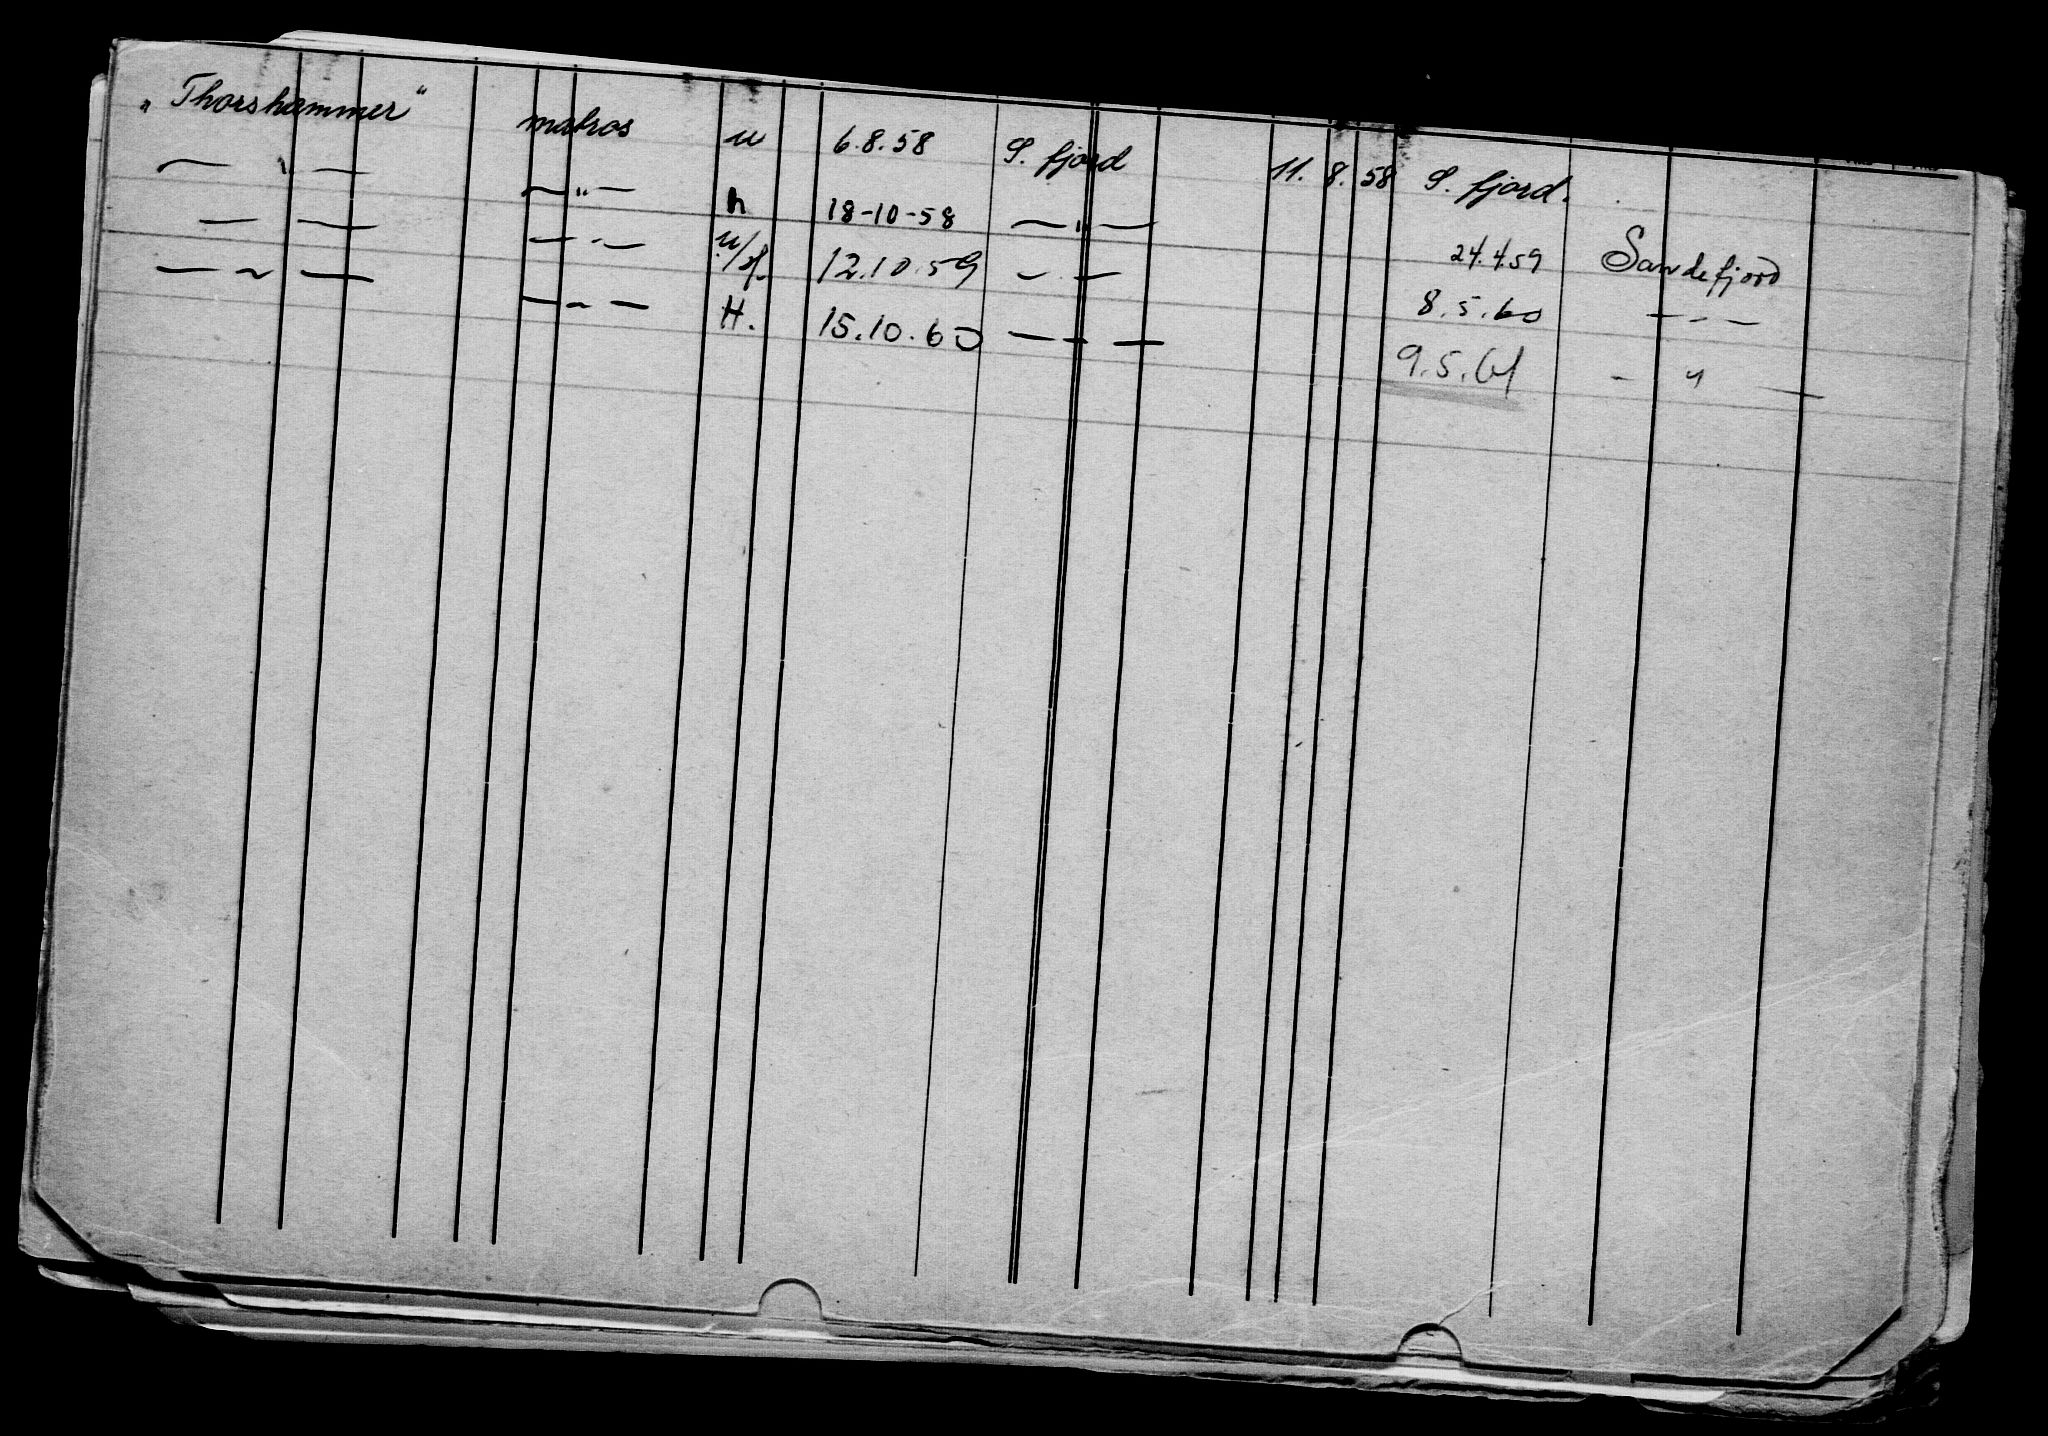 „Thorshammer“ matros u 6.8.58 S. fjord 11. 8. 58 S. fjord.
— " — — " — h 18-10-58 — " — 24.4.59 Sandefjord
— — — " — u/h. 12.10.59 — " — 8.5.60 — " —
— " — — " — H. 15.10.60 — " — 9.5.61 — " —